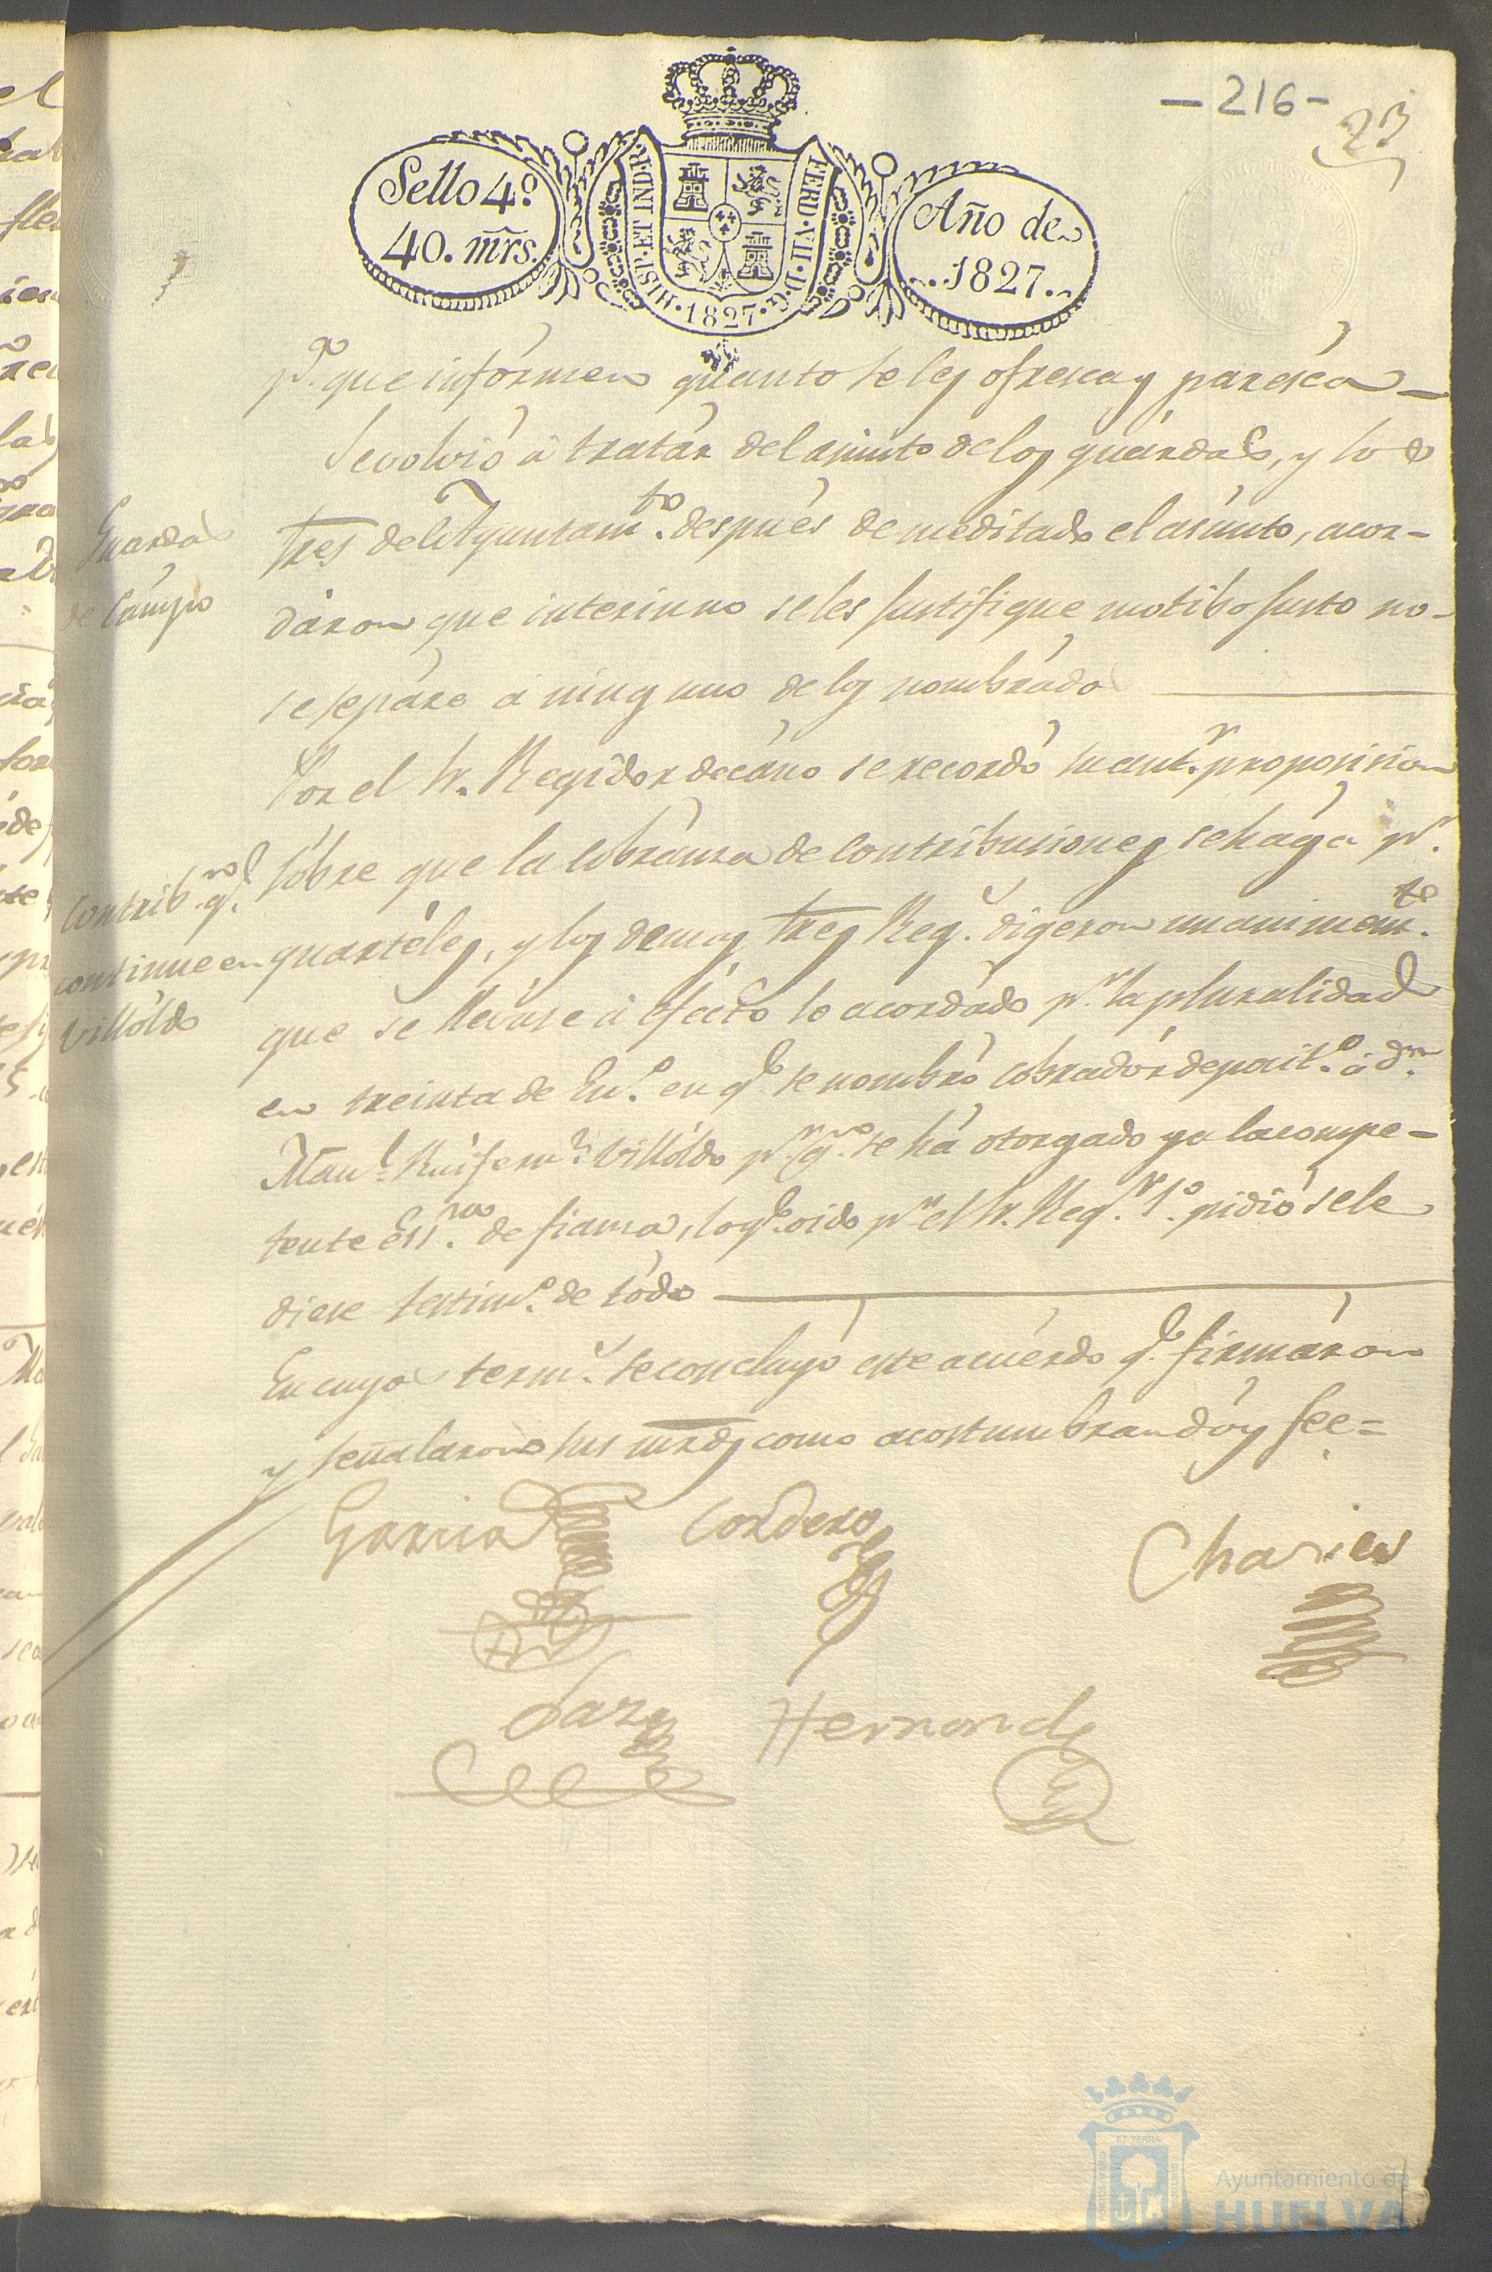 - 216 -
23
Sello 4º
40. mrs.
HISP. ET IND. R.
FERD. VII. D. G.
1827
Año de
1827.
pª. que informen quanto se les ofresca y paresca
Se volvió á tratar del asunto de los guardas, y los
Guardas
de Campo
Sres del Ayuntamto. después de meditado el asunto, acor-
dáron que interinno se les justifique motibo justo no
se sepáre á ninguno de los nombrados
Por el Sr. Regidor decáno se recordó su antr. proposicion
sóbre que la cobranza de Contribuciones se haga pr.
Contribnes. qe.
continue en
Villóldo
quartéles, y los demas Sres Regs. digeron unanimemte.
que se lleváse á efecto lo acordádo pr. la pluralidad
en treinta de Enº. en qe. se nombró cobradór deposit.º á dn.
Manl. Ruifernz. Villóldo pr. qn. se há otorgado ya la compe-
tente Essra. de fianza, lo qe. oido pr. el Sr. Regr. 1º. pidió se le
diese testimº. de todo
En cuyos termº. se concluyó este acuérdo qe. firmáron
y señalaron sus mrds como acostumbran doy fee=
Garcia
Cordero
Charies
Laza
Hernandz
Ayuntamiento de
HUELVA